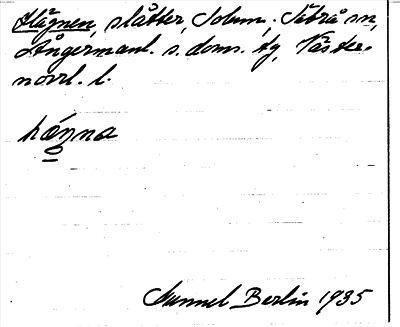 Hägnen, slåtter, Solum, Säbrå sn,
Ångermanl. s. doms. tg, Väster-
norrl. l.
hæŋna
Gunnel Berlin 1935